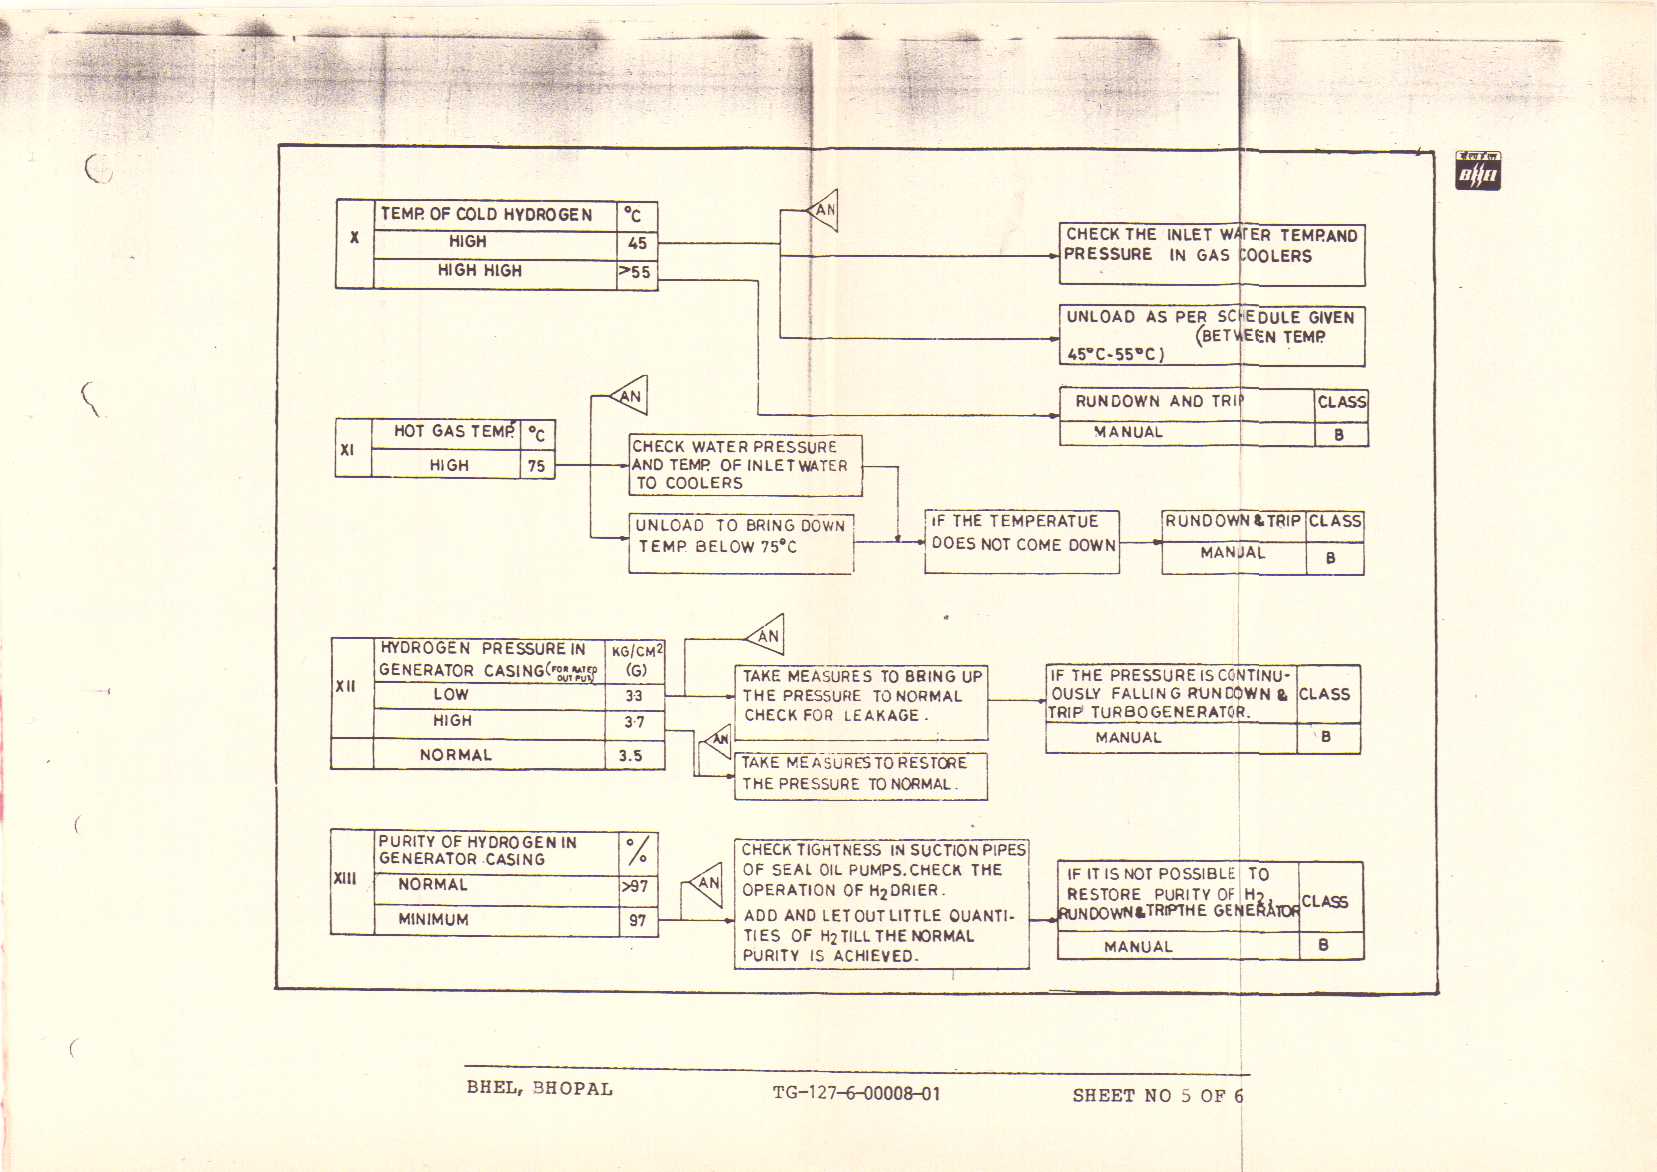 बीएचईएल
BHEL
X
TEMP. OF COLD HYDROGEN °C
HIGH 45
HIGH HIGH >55
AN
CHECK THE INLET WATER TEMP. AND
PRESSURE IN GAS COOLERS
UNLOAD AS PER SCHEDULE GIVEN
(BETWEEN TEMP.
45°C-55°C)
RUNDOWN AND TRIP CLASS
MANUAL B
XI
HOT GAS TEMP. °C
HIGH 75
AN
CHECK WATER PRESSURE
AND TEMP. OF INLET WATER
TO COOLERS
UNLOAD TO BRING DOWN
TEMP. BELOW 75°C
IF THE TEMPERATUE
DOES NOT COME DOWN
RUNDOWN & TRIP CLASS
MANUAL B
XII
HYDROGEN PRESSURE IN
GENERATOR CASING (FOR RATED
OUT PUT)
KG/CM²
(G)
LOW 3.3
HIGH 3.7
NORMAL 3.5
AN
TAKE MEASURES TO BRING UP
THE PRESSURE TO NORMAL
CHECK FOR LEAKAGE.
AN
TAKE MEASURES TO RESTORE
THE PRESSURE TO NORMAL.
IF THE PRESSURE IS CONTINU-
OUSLY FALLING RUNDOWN &
TRIP TURBOGENERATOR.
CLASS
MANUAL B
XIII
PURITY OF HYDROGEN IN
GENERATOR CASING
%
NORMAL >97
MINIMUM 97
AN
CHECK TIGHTNESS IN SUCTION PIPES
OF SEAL OIL PUMPS. CHECK THE
OPERATION OF H2 DRIER.
ADD AND LET OUT LITTLE QUANTI-
TIES OF H2 TILL THE NORMAL
PURITY IS ACHIEVED.
IF IT IS NOT POSSIBLE TO
RESTORE PURITY OF H2,
RUNDOWN & TRIP THE GENERATOR
CLASS
MANUAL B
BHEL, BHOPAL TG-127-6-00008-01 SHEET NO 5 OF 6